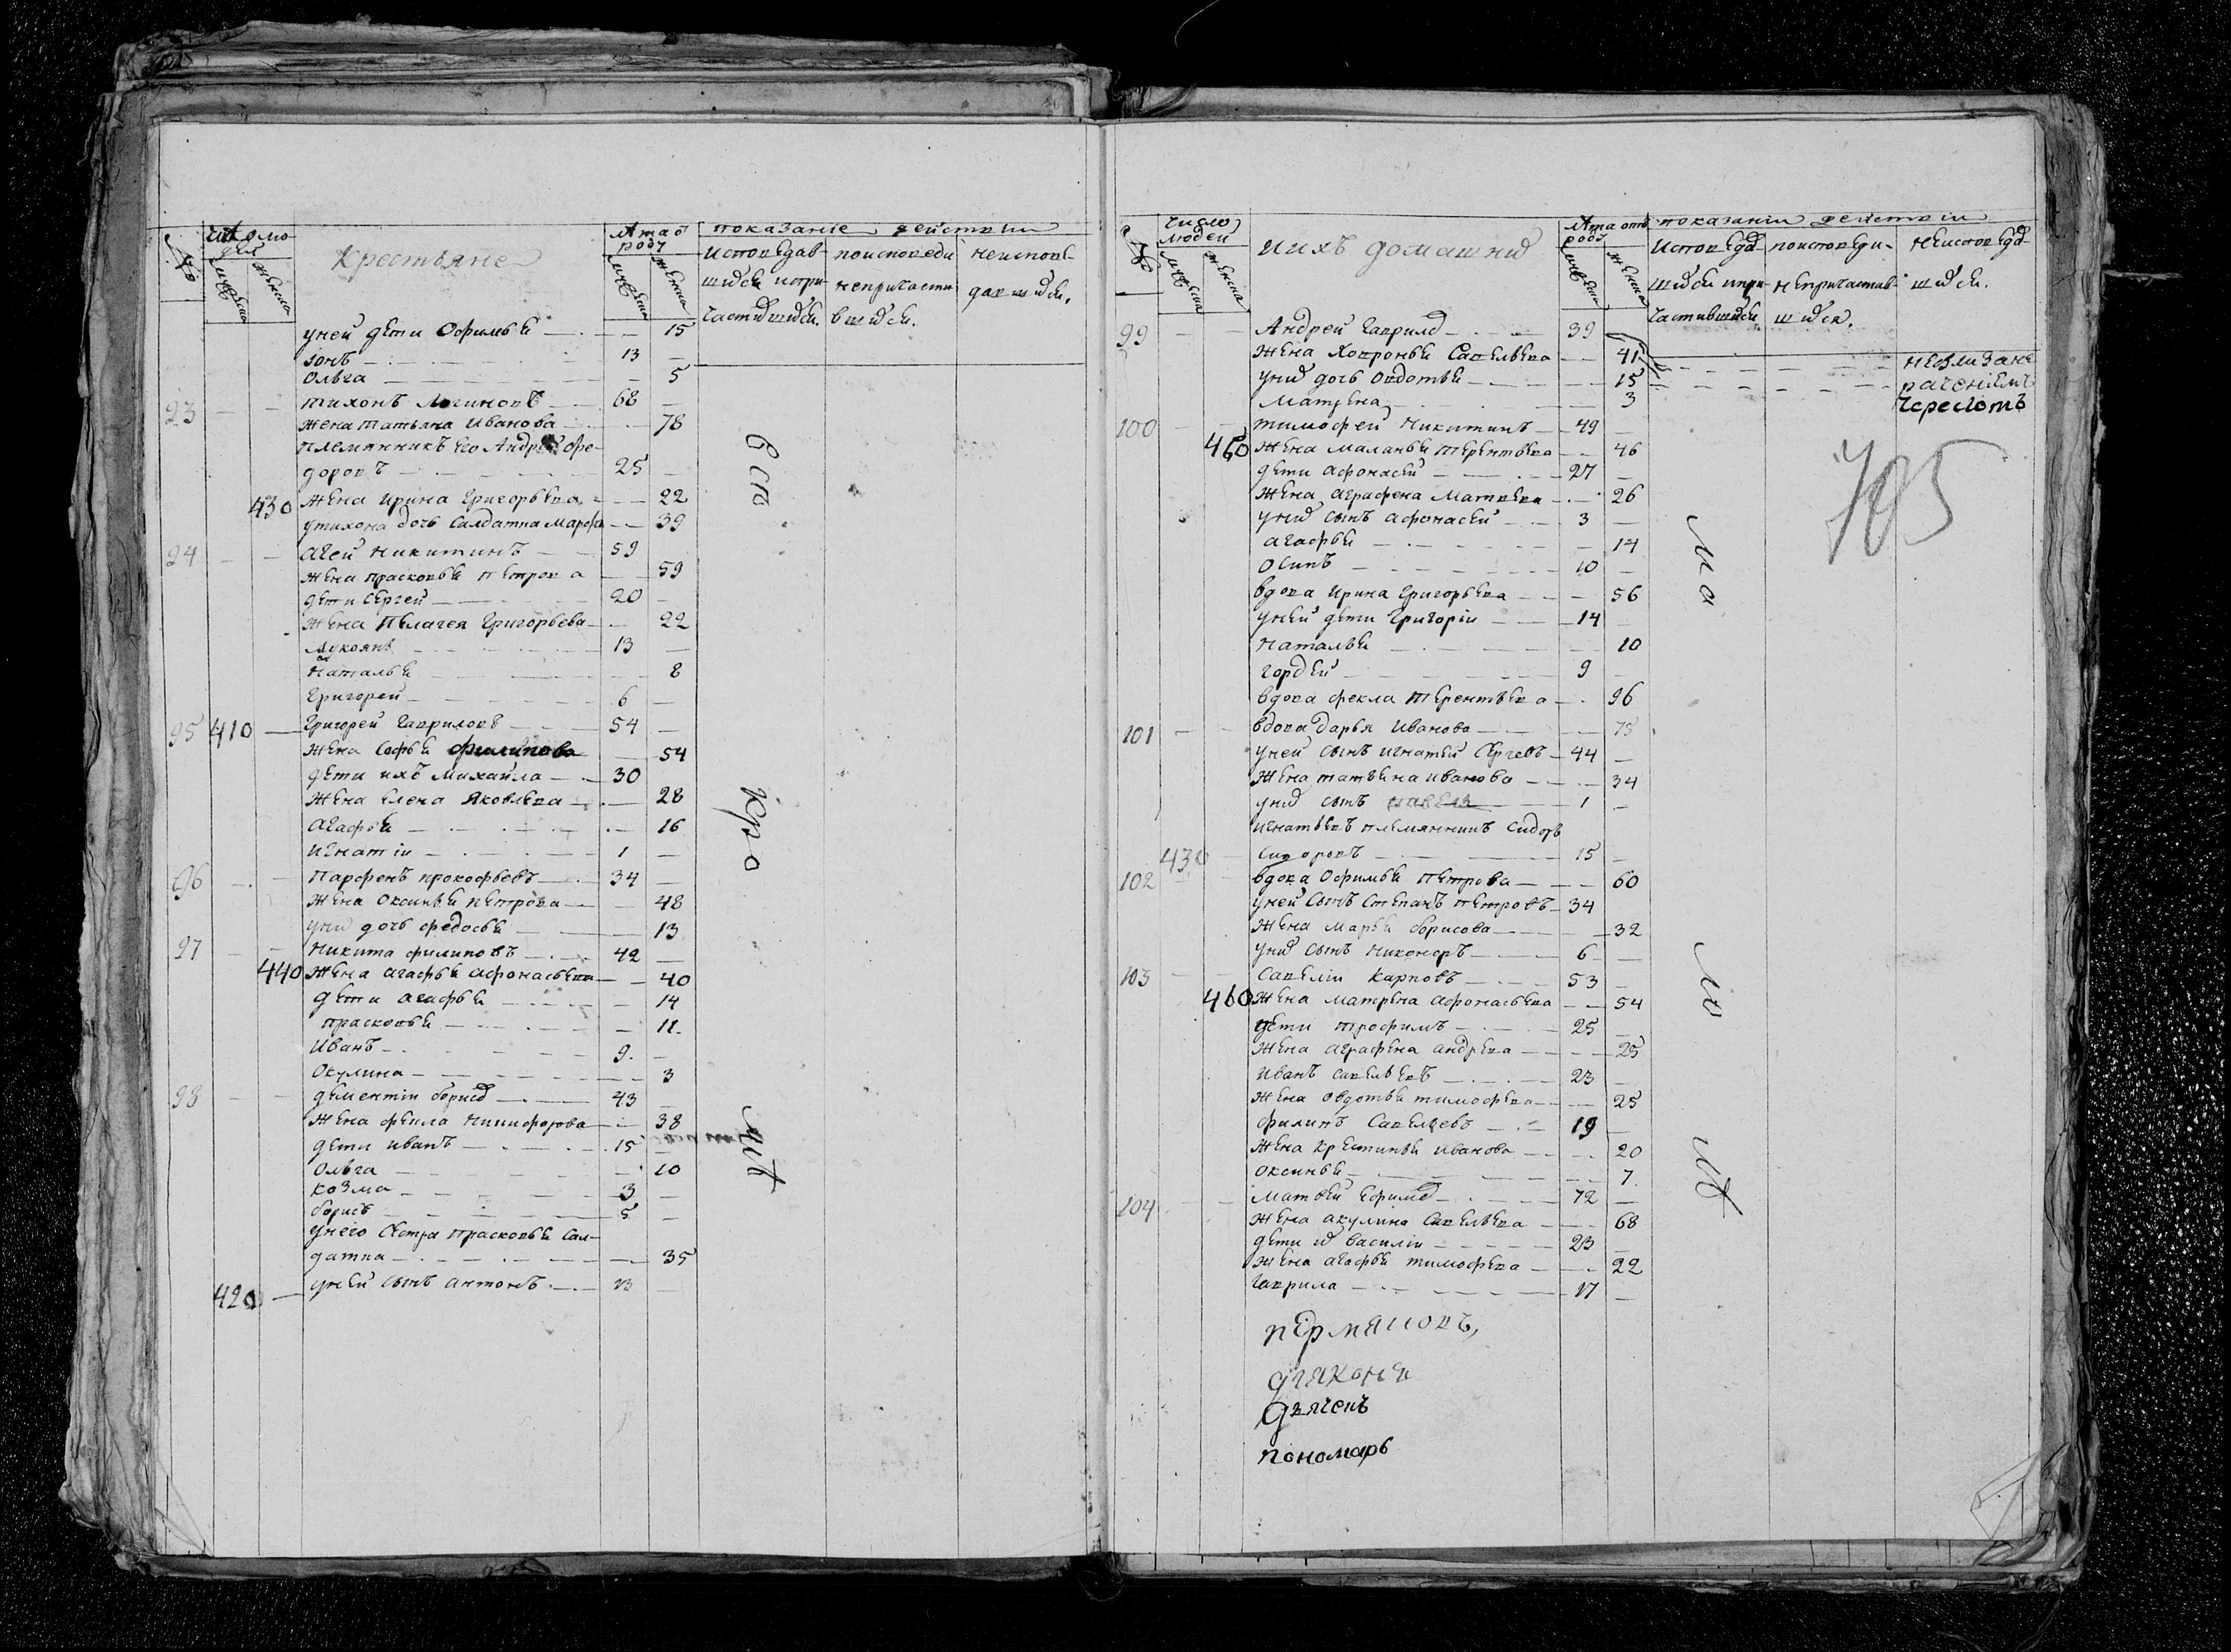 число людей
Крестьяне
лѣта от роду
показаніе дѣйствии
№
мужеска
женска
мужеска
женска
исповедав-
шихся и при-
частившихся.
поисповеди
непричасти-
вшихся.
неиспове-
давшихся.
уней дети Офимья 15
зонъ 13
Ольга 5
93 тихонъ Логиновъ 68
жена татьяна Иванова 78
племянникъ его Андрей Фе-
доровъ 25
430 жена Ирина Григорьева 22
утихона дочь Салдатка Марфа 39
94 Агей Никитинъ 59
жена прасковья петрова 59
дети Сергей 20
жена Пелагея Григорьева 22
Лукоянъ 13
Наталья 8
Григорей 6
95 410 Григорей Гавриловъ 54
жена Софья филипова 54
дети ихъ Михайла 30
жена Елена Яковлева 28
Агафья 16
Игнатіи 1
96 Парфенъ прокофьевъ 34
жена Оксинья петрова 48
уних дочь федосья 13
97 Никита филиповъ 42
440 жена агафья афонасьева 40
дети агафья 14
прасковья 11
Иванъ 9
Окулина 3
98 дементіи борисов 43
жена фекла Никифорова 38
дети иванъ 15
Ольга 10
козма 3
борисъ 5
унего сестра прасковья сал-
датка 35
420 уней сынъ антонъ 13
Его
кро
мѣ
число
людей
ихъ домашних
лѣта отъ
роду
показаніи дѣйствіи
№
мужеска
женска
мужеска
женска
исповедав-
шихся и при-
частившихся
поисповеди-
непричастив-
шихся.
неисповедав-
шихся.
99 Андрей Гаврилов 39
жена Ховронья Савельева 41
уних дочь Овдотья 15
Матрена 3
100 тимофей Никитинъ 49
460 жена маланья терентьева 46
дети афонасей 27
жена аграфена Матвева 26
уних сынъ афонасей 3
агафья 14
Осипъ 10
вдова Ирина Григорьева 56
уней дети Григоріи 14
Наталья 10
гордей 9
вдова фекла терентьева 96
101 вдова Дарья Иванова 75
уней сынъ игнатей Сергевъ 44
жена татьяна иванова 34
уних сынъ павелъ 1
игнатьевъ племянникъ Сидоръ
430 Сидоровъ 15
102 вдова Офимья Петрова 60
уней сынъ Степанъ петровъ 34
жена марья борисова 32
уних сынъ Никоноръ 6
103 Савеліи Карповъ 53
460 жена матрена афонасьева 54
дети трофимъ 25
жена аграфена андрева 25
Иванъ савельевъ 23
жена овдотья тимофева 25
филипъ Савельевъ 19
жена крестинья иванова 20
оксинья 7
104 матвей ефимов 72
жена акулина савельева 68
дети их василіи 23
жена агафья тимофева 22
гаврила 17
пермяковъ,
диякона
дьячекъ
пономарь
705
ма
ло
лѣ